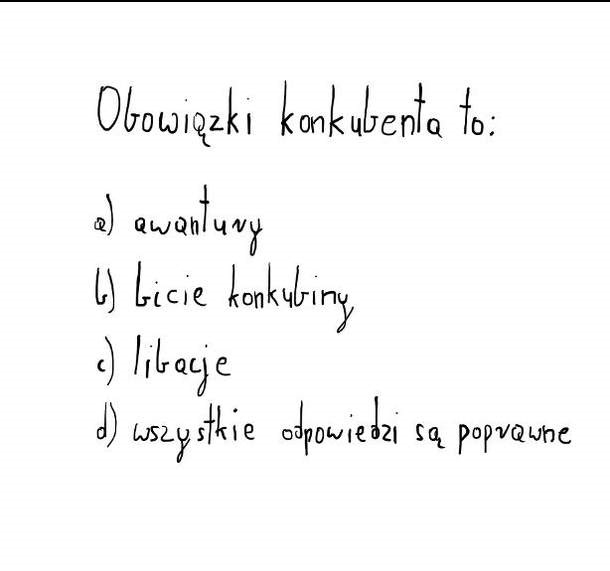 Obowiązki konkubenta to:
a) awantury
b) bicie konkubiny
c) libacje
d) wszystkie odpowiedzi są poprawne